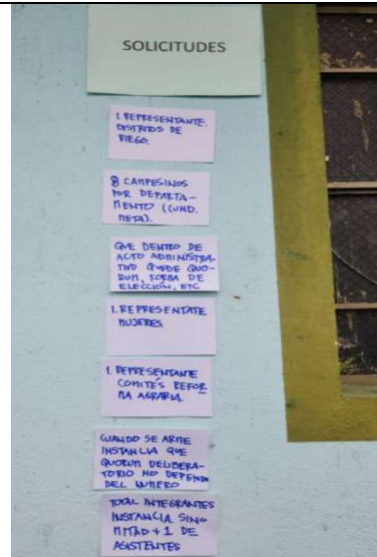 SOLICITUDES
1 REPRESENTANTE.
DISTRITOS DE
RIEGO.
8 CAMPESINOS
POR DEPARTA-
MENTO (CUND.
META).
QUE DENTRO DE
ACTO ADMINISTRA
TIVO QUEDE QUO-
RUM, FORMA DE
ELECCIÓN, ETC
1. REPRESENTATE
MUJERES.
1. REPRESENTANTE
COMITÉS REFOR
MA AGRARIA.
CUANDO SE ARME
INSTANCIA QUE
QUORUM DELIBERA-
TORIO NO DEPENDA
DEL NUMERO
TOTAL INTEGRANTES
INSTANCIA SINO
MITAD + 1 DE
ASISTENTES